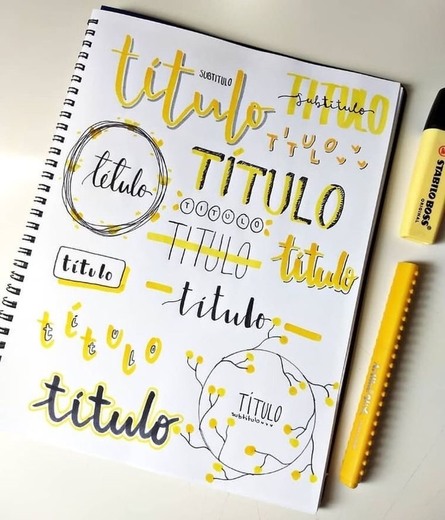 título
SUBTITULO
TITULO
subtitulo
TÍTULO
título
TÍTULO
TITULO
TITULO
título
título
título
título
TÍTULO
subtitulo...
título
STABILO BOSS
ORIGINAL